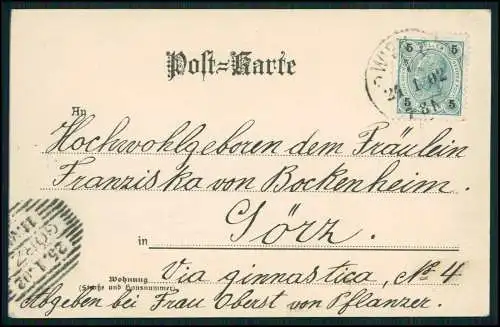 Post=Karte
5 5
5 5
WIEN
24 1 02
An
Hochwohlgeboren dem Fräulein
Franziska von Bockenheim.
in Görz.
Wohnung
(Straße und Hausnummer)
Via ginnastica, No 4
Abzugeben bei Frau Oberst von Pflanzer.
GÖRZ
25.1.02